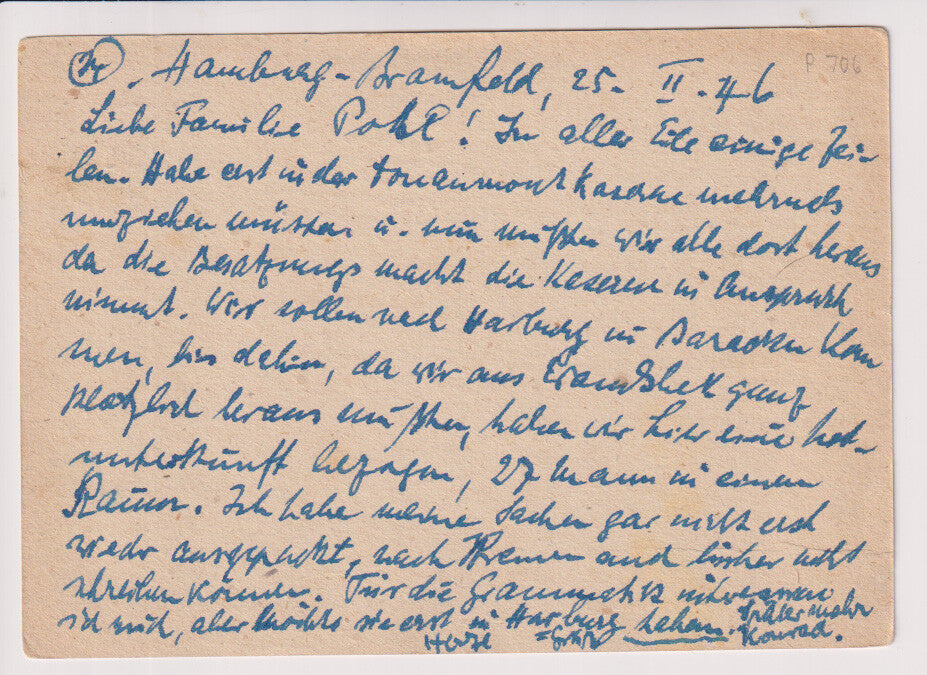 24, Hamburg-Bramfeld, 25. II. 46
P 706
Liebe Familie Pohl! In aller Eile einige Zei-
len. Habe erst in der Douaumont Kaserne mehrmals
umziehen müssen u. nun mußten wir alle dort heraus
da die Besatzungsmacht die Kaserne in Anspruch
nimmt. Wir sollen nach Harburg in Baracken kom
men, bis dahin, da wir aus Wandsbek ganz
plötzlich heraus mußten, haben wir hier eine Not-
unterkunft bezogen, 27 Mann in einem
Raum. Ich habe meine Sachen gar nicht erst
wieder ausgepackt, nach Bremen auch bisher nicht
schreiben können. Für die Grammatik interessiere
ich mich, aber möchte sie erst in Harburg haben. Später mehr
Konrad.